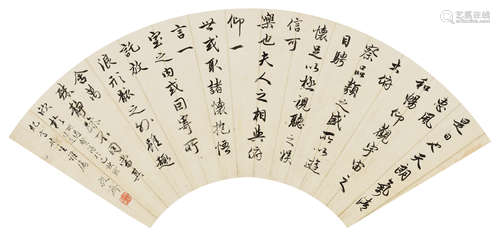 是日也天朗氣清
惠風
和暢仰觀宇宙之
大俯
察品類之盛所以遊
目騁
懷足以極視聽之娛
信可
樂也夫人之相與俯
仰一
世或取諸懷抱悟
言一
室之內或因寄所
託放
浪形骸之外雖趣
舍萬
殊靜躁不同當其
欣於